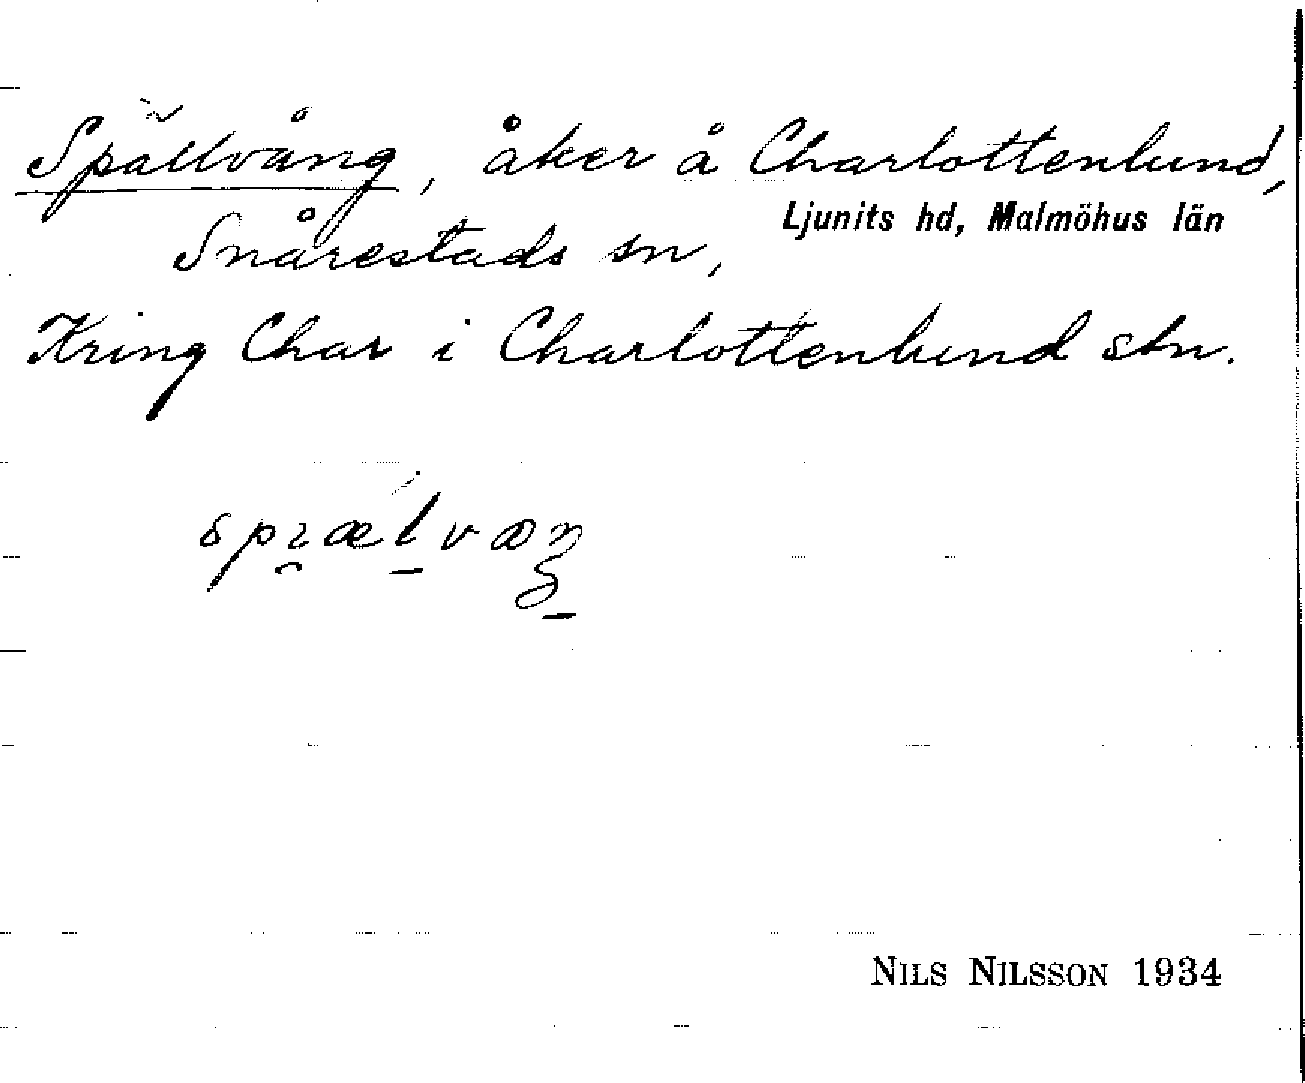 Spällvång, åker å Charlottenlund,
Ljunits hd, Malmöhus län
Snårestads sn,
Kring Char i Charlottenlund stn.
NILS NILSSON 1934